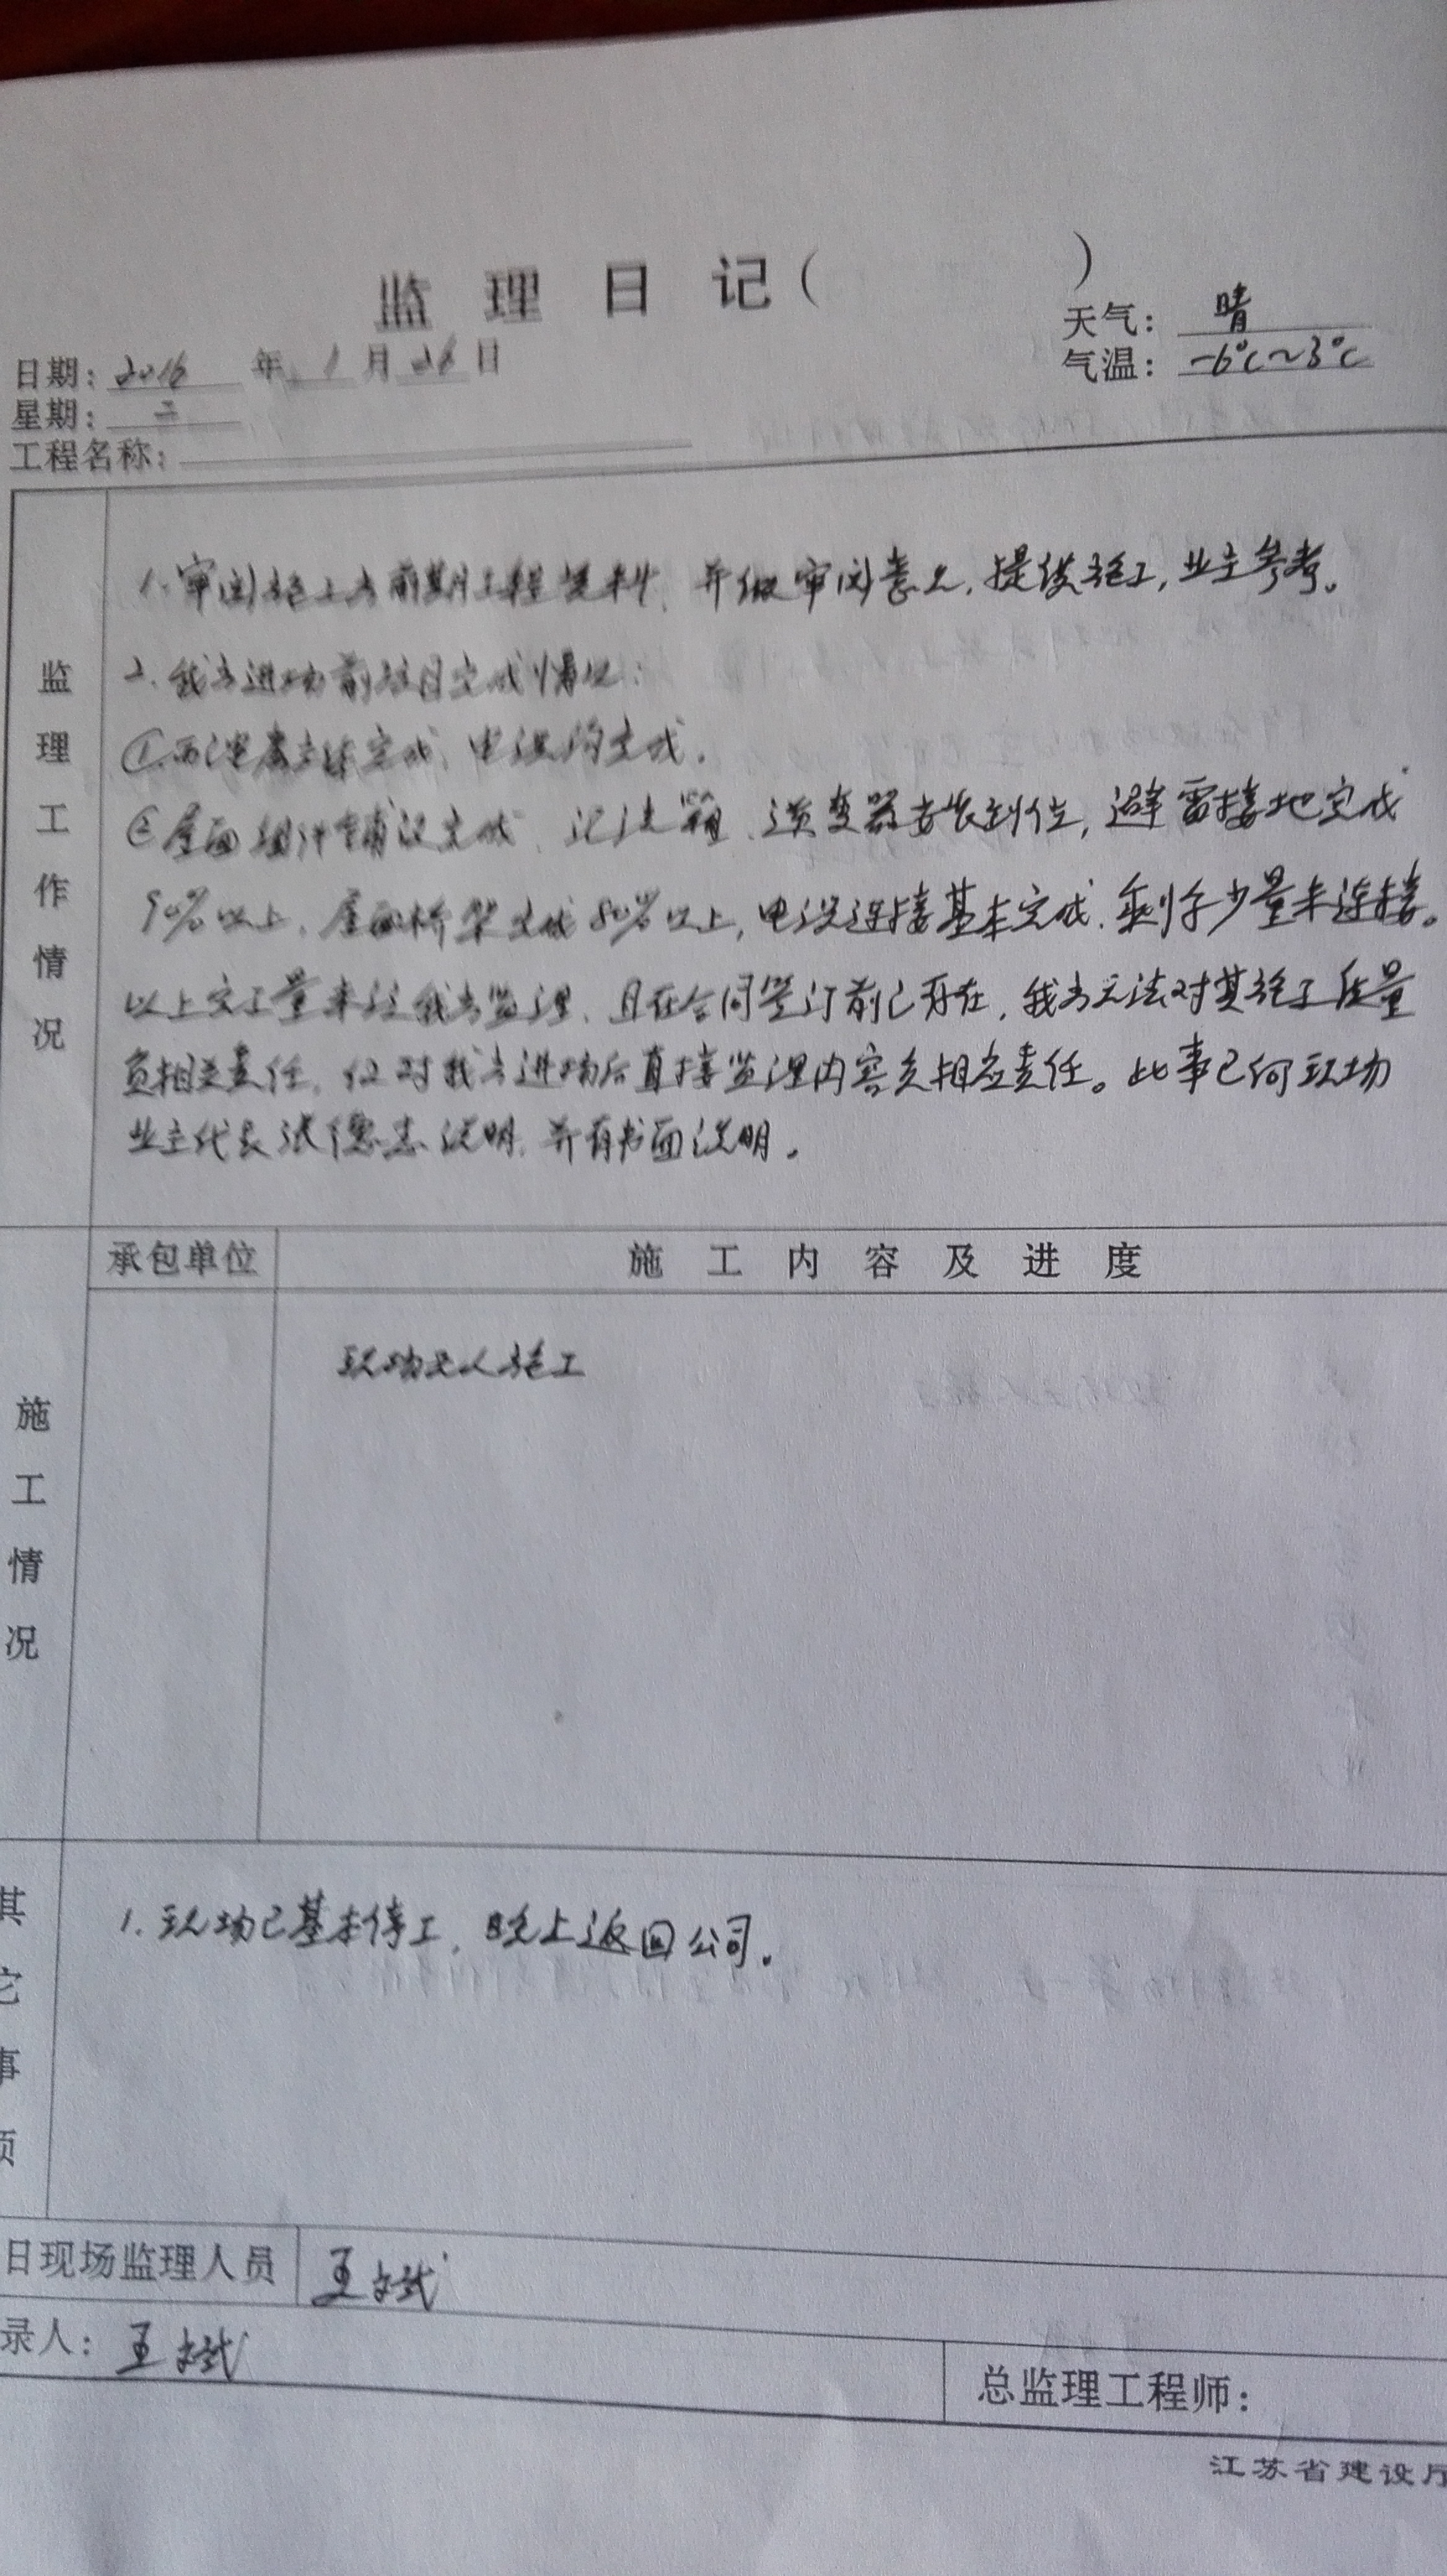 监理日记( )
天气: 晴
日期: 2016 年 1 月 26 日
气温: -6℃~3℃
星期: 二
工程名称:
监理工作情况
1.审阅施工方前期工程资料,并做审阅意见,提供施工,业主参考。
2.我方进场前项目完成情况:
①.西 完成、电 完成。
②屋面组件铺设完成、汇流箱、逆变器安装到位,避雷接地完成
90%以上、屋面桥架完成80%以上,电 连接基本完成.剩余少量未连接。
以上 工量未经我方监理、且在合同签订前已存在,我方无法对其施工质量
负相关责任,仅对我方进场后直接监理内容负相应责任。此事已向现场
业主代表张德志说明,并有书面说明。
承包单位
施工内容及进度
施工情况
现场无人施工
其它事项
1.现场已基本停工,晚上返回公司。
日现场监理人员 王文斌
录人: 王文斌
总监理工程师:
江苏省建设厅